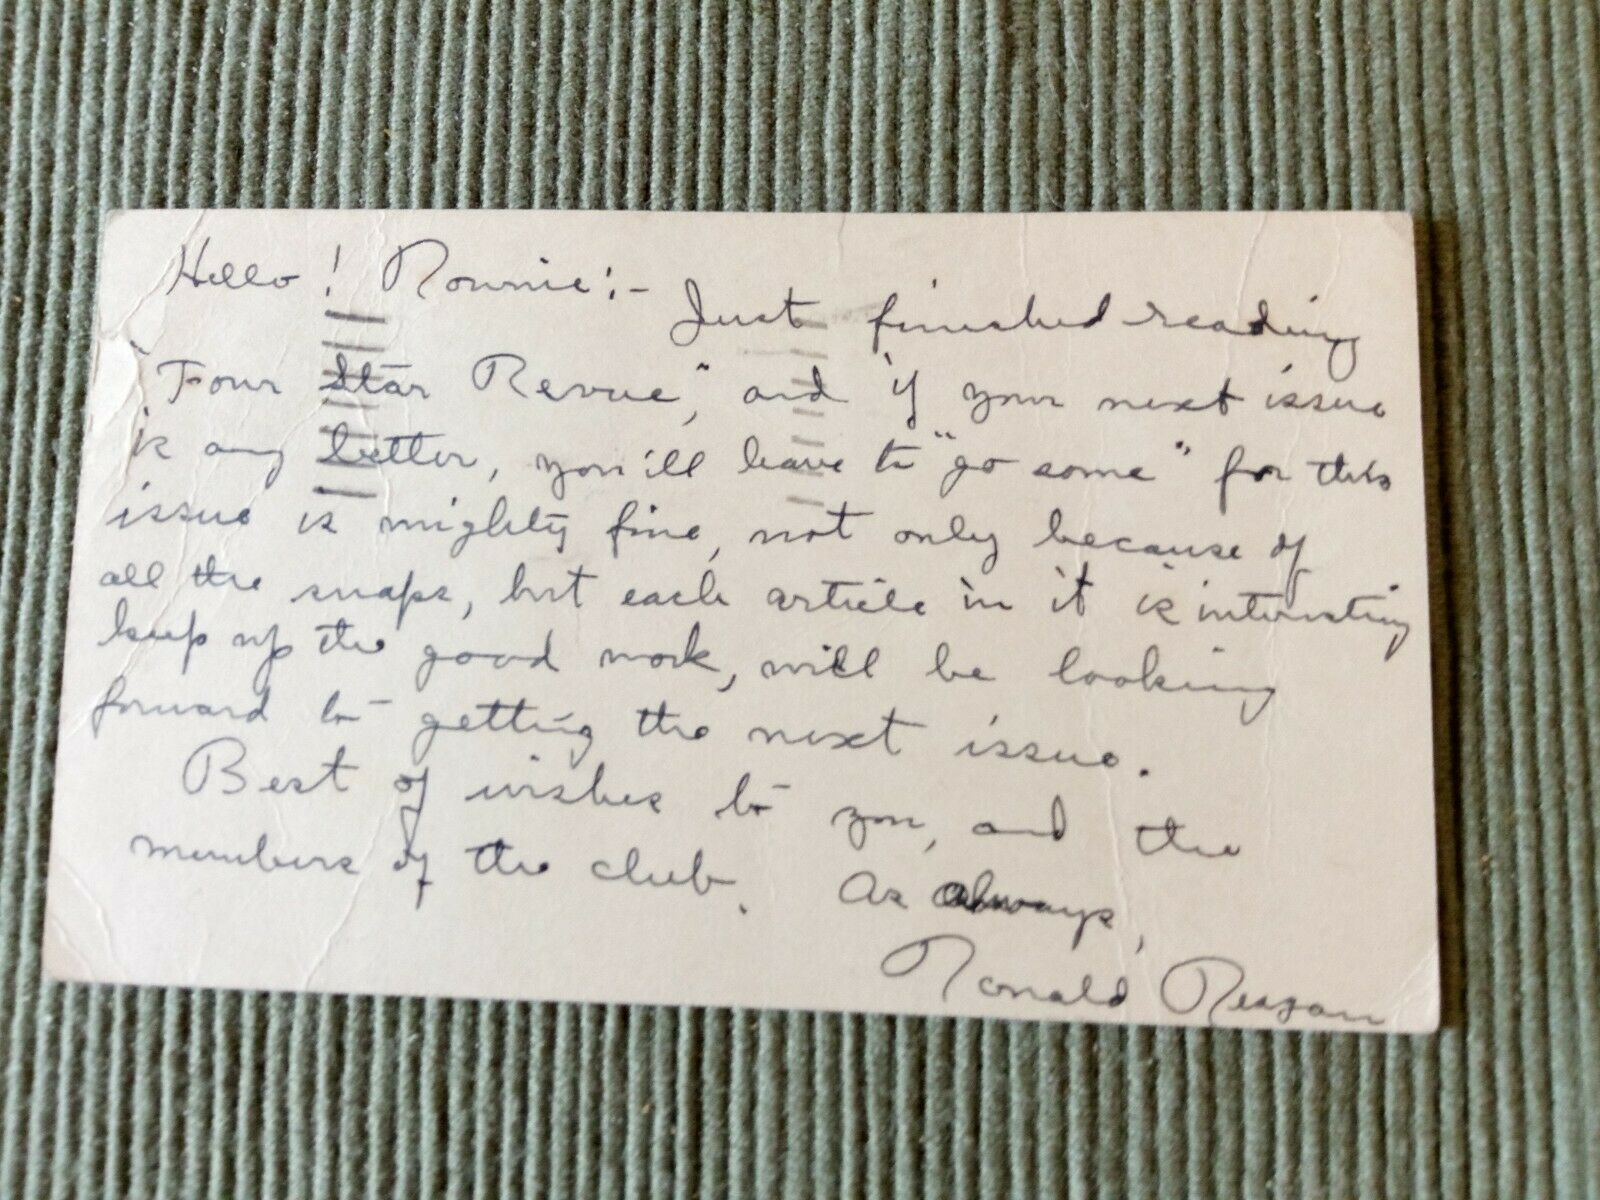 Hello! Ronnie:- Just finished reading
"Four Star Revue," and if your next issue
is any better, you'll have to "go some" for this
issue is mighty fine, not only because of
all the snaps, but each article in it is interesting
keep up the good work, will be looking
forward to getting the next issue.
Best of wishes to you, and the
members of the club. As always,
Ronald Reagan